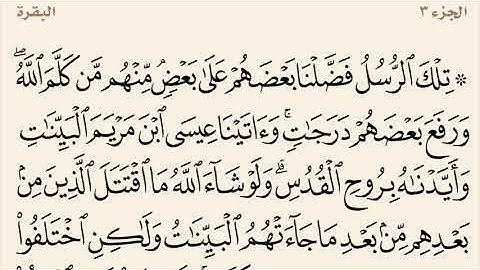 الجزء ٣
البقرة
۞ تِلْكَ ٱلرُّسُلُ فَضَّلْنَا بَعْضَهُمْ عَلَىٰ بَعْضٍ مِّنْهُم مَّن كَلَّمَ ٱللَّهُ ۖ
وَرَفَعَ بَعْضَهُمْ دَرَجَٰتٍ ۚ وَءَاتَيْنَا عِيسَى ٱبْنَ مَرْيَمَ ٱلْبَيِّنَٰتِ
وَأَيَّدْنَٰهُ بِرُوحِ ٱلْقُدُسِ ۗ وَلَوْ شَآءَ ٱللَّهُ مَا ٱقْتَتَلَ ٱلَّذِينَ مِنۢ
بَعْدِهِم مِّنۢ بَعْدِ مَا جَآءَتْهُمُ ٱلْبَيِّنَٰتُ وَلَٰكِنِ ٱخْتَلَفُوا۟